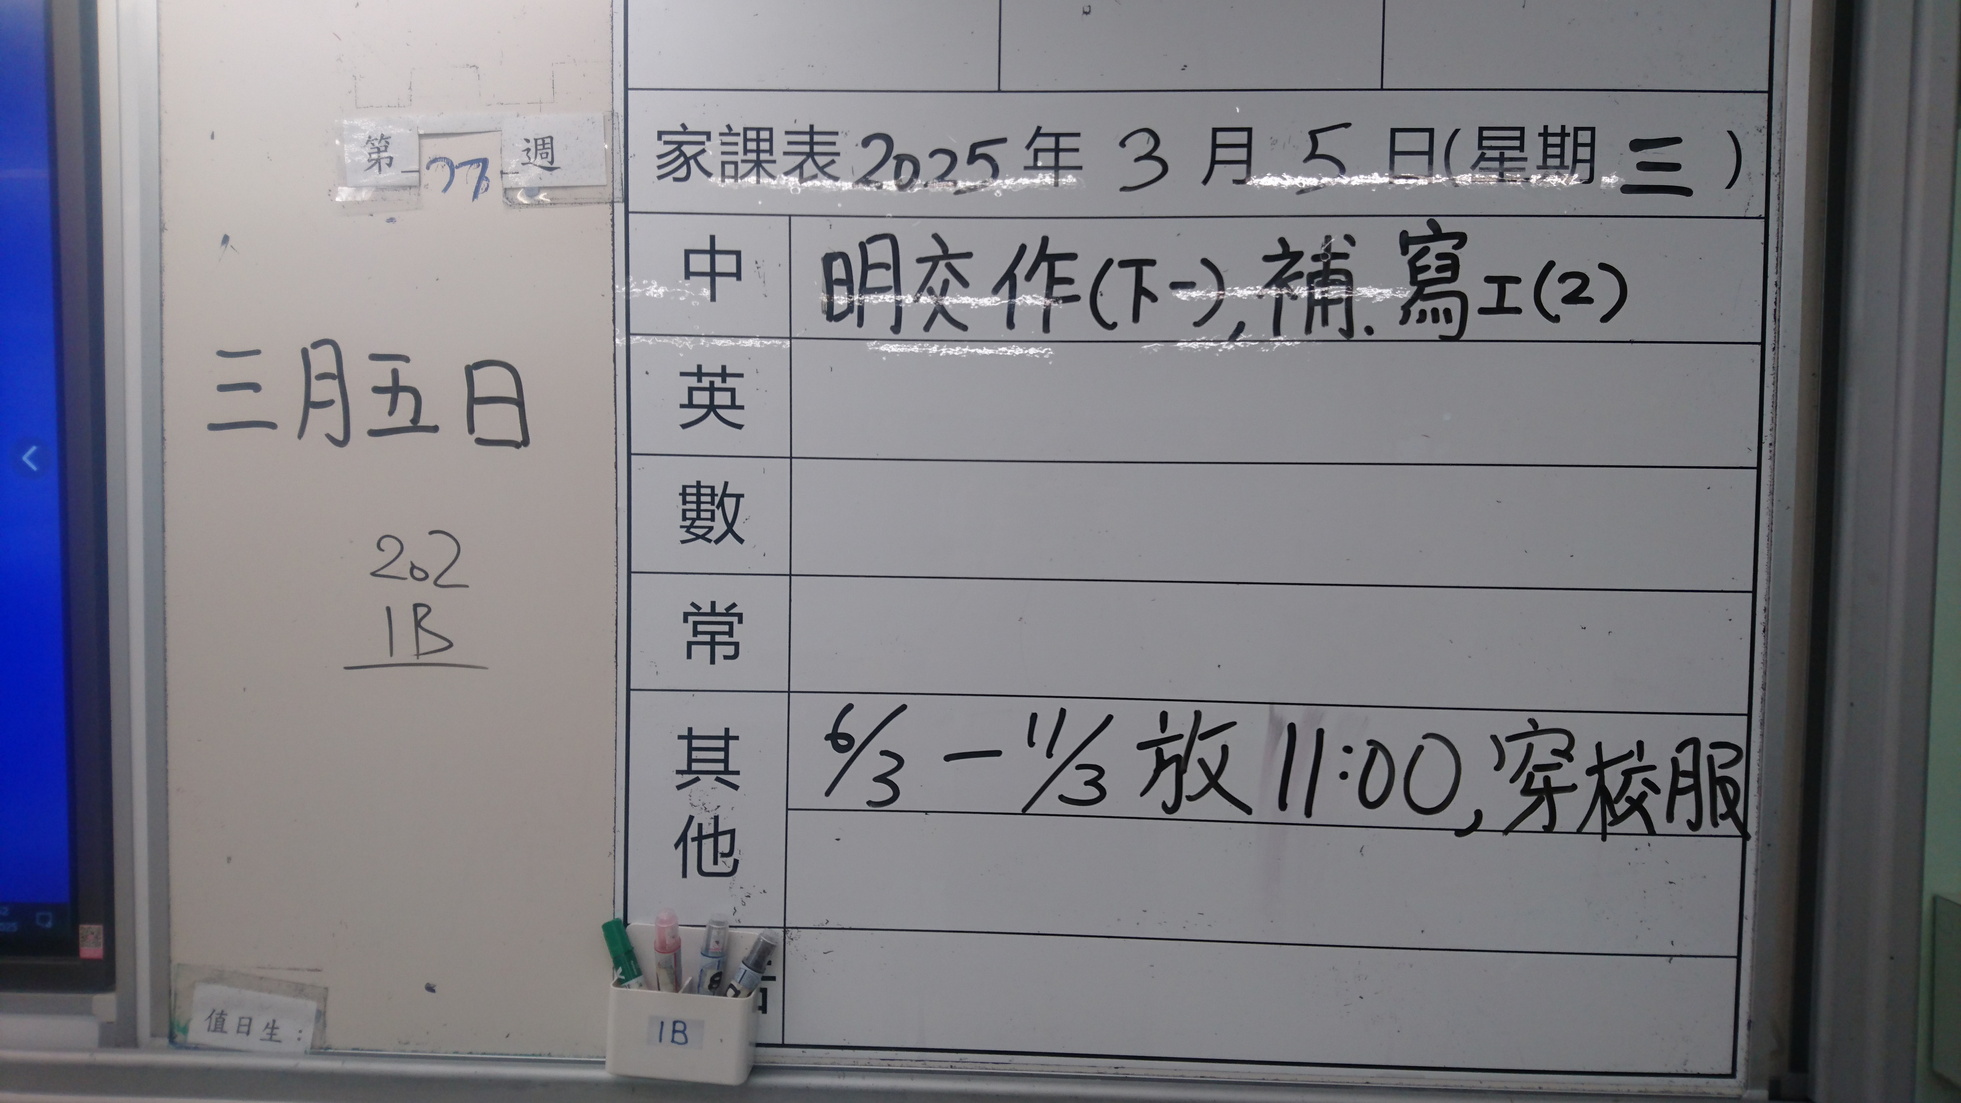 第 27 週
家課表2025年 3 月 5 日(星期 三 )
中 明交作(下一),補.寫工(2)
三月五日
英
數
202
1B
常
其他
6/3 — 11/3 放 11:00,穿校服
值日生：
1B